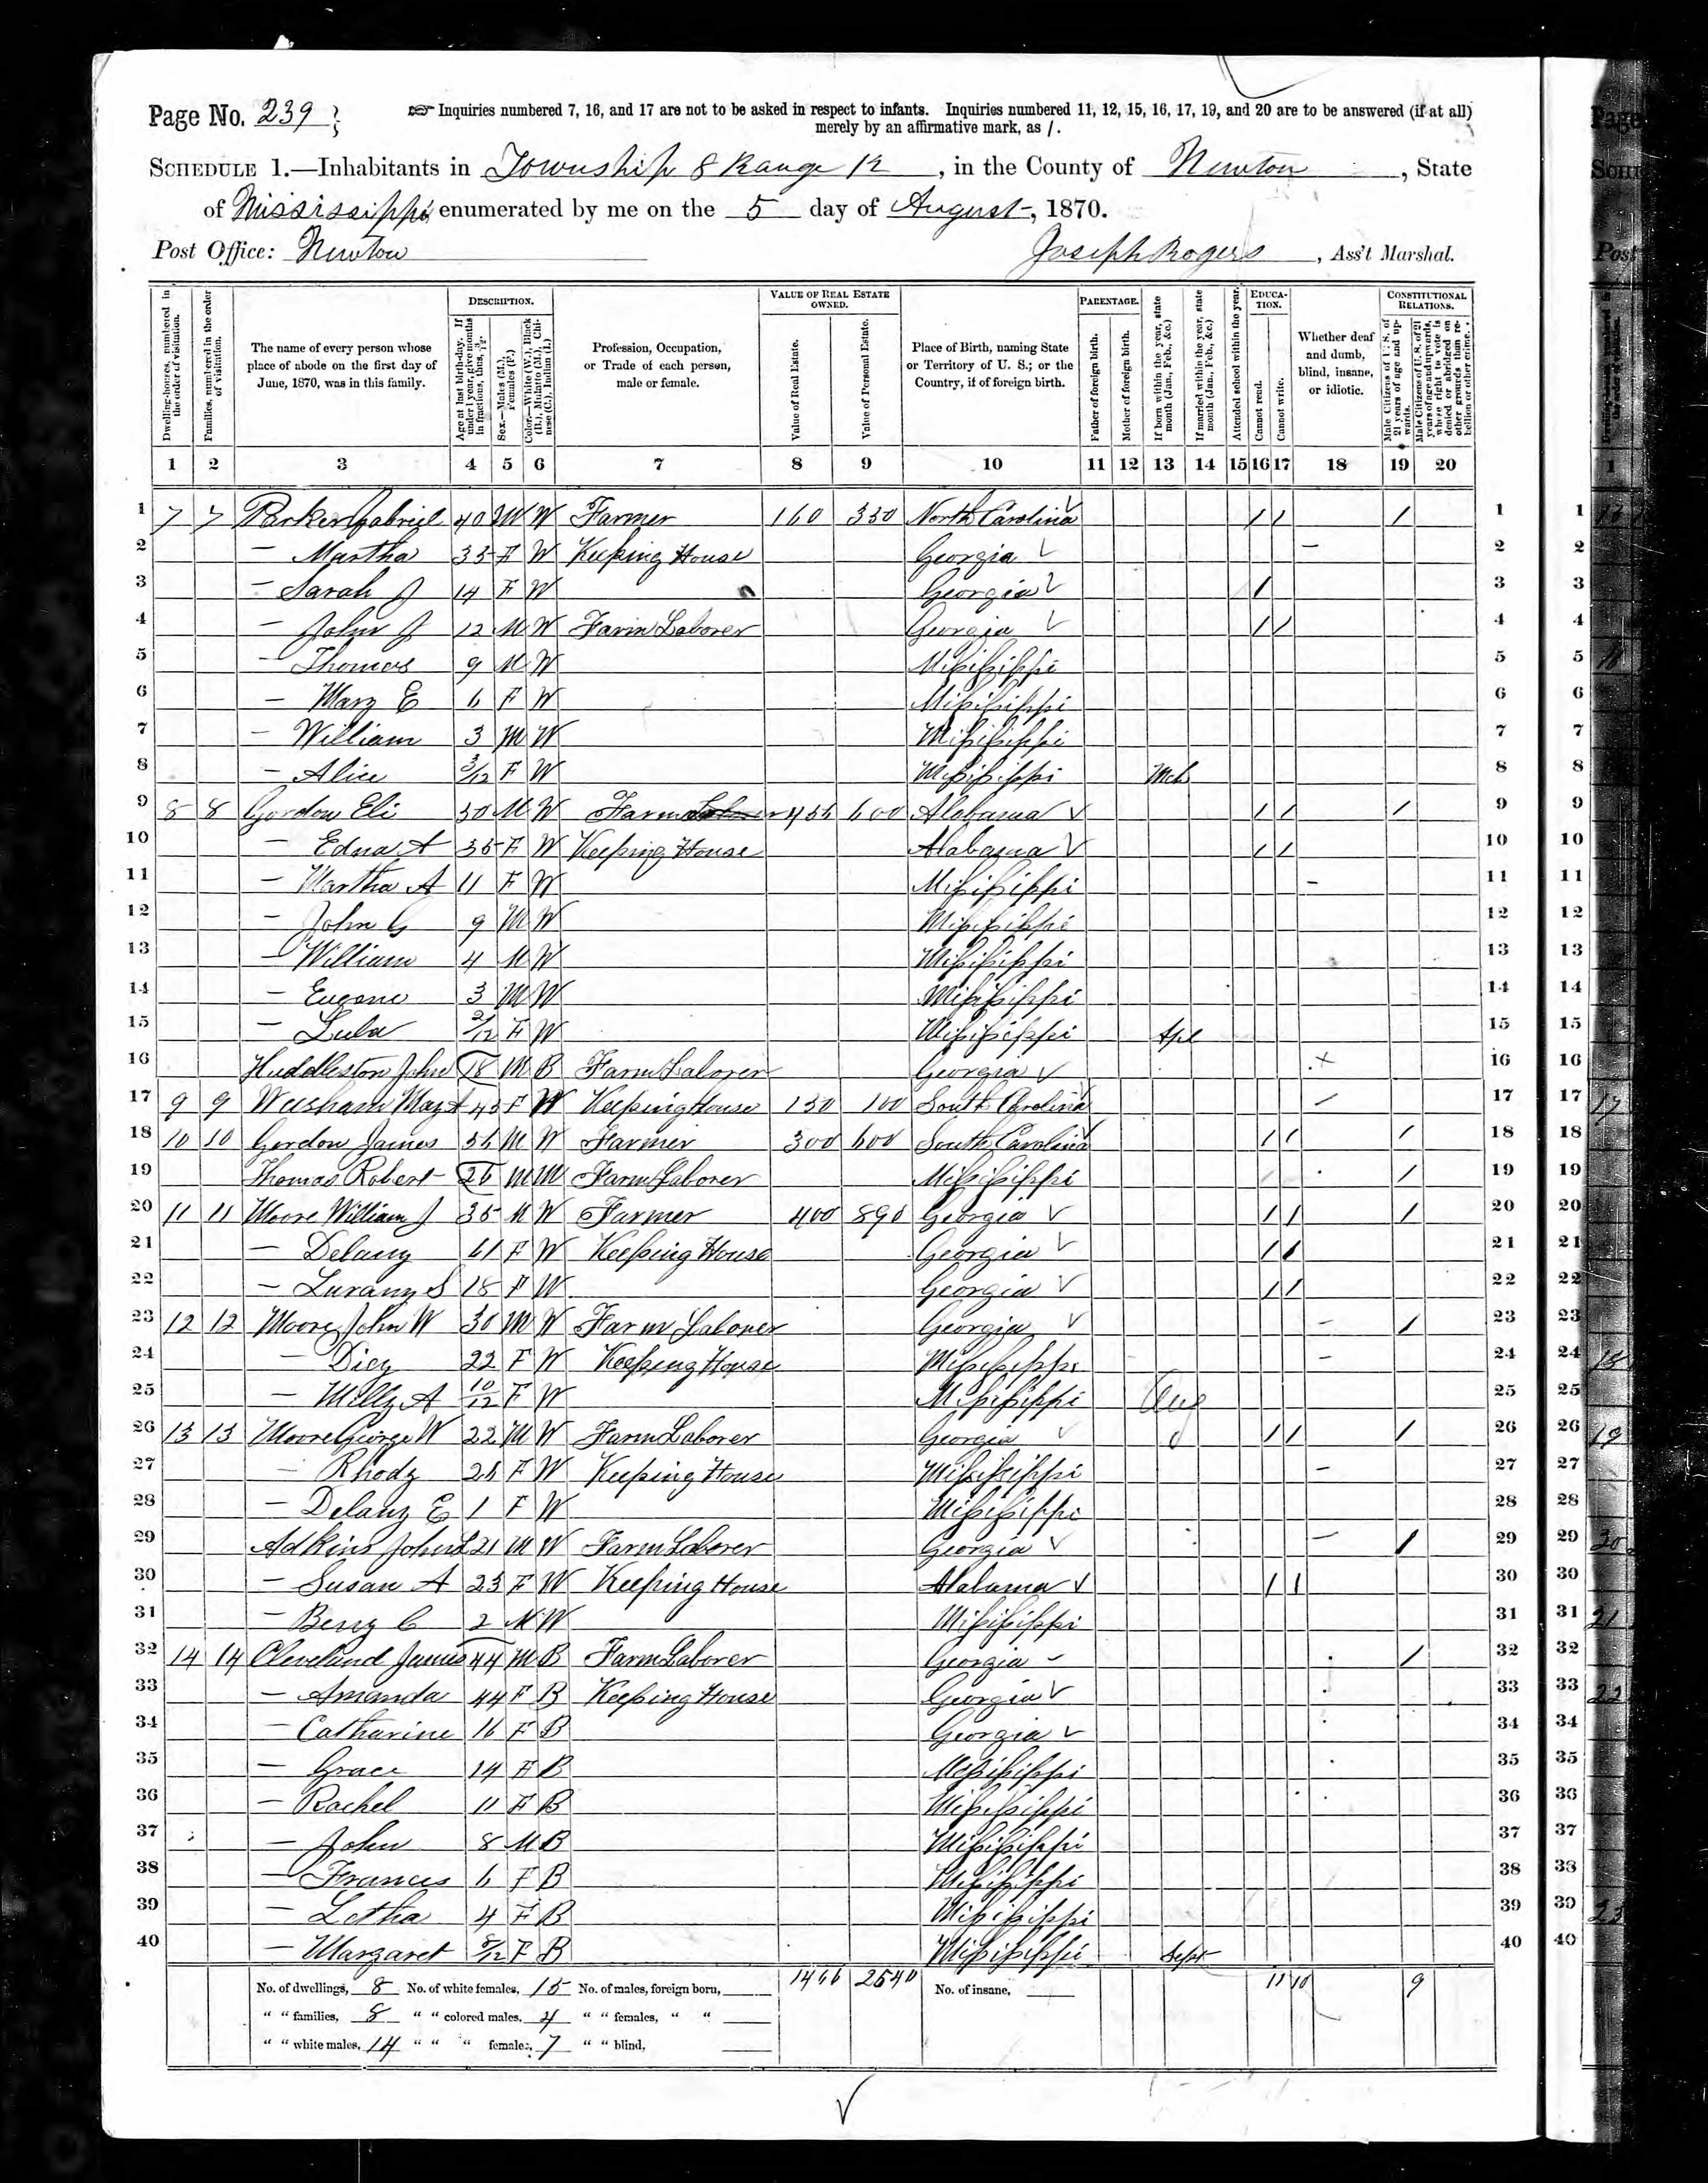 Page No. 239
Inquiries numbered 7, 16, and 17 are not to be asked in respect to infants. Inquiries numbered 11, 12, 15, 16, 17, 19, and 20 are to be answered (if at all)
merely by an affirmative mark, as /.
SCHEDULE 1.—Inhabitants in Township 8 Range 12, in the County of Newton, State
of Mississippi, enumerated by me on the 5 day of August, 1870.
Post Office: Newton
Joseph Rogers, Ass't Marshal.
DESCRIPTION. VALUE OF REAL ESTATE OWNED. PARENTAGE. EDUCATION. CONSTITUTIONAL RELATIONS.
Dwelling-houses, numbered in the order of visitation.
Families, numbered in the order of visitation.
The name of every person whose place of abode on the first day of June, 1870, was in this family.
Age at last birth-day. If under 1 year, give months in fractions, thus, 3/12.
Sex.—Males (M.), Females (F.)
Color.—White (W.), Black (B.), Mulatto (M.), Chinese (C.), Indian (I.)
Profession, Occupation, or Trade of each person, male or female.
Value of Real Estate.
Value of Personal Estate.
Place of Birth, naming State or Territory of U. S.; or the Country, if of foreign birth.
Father of foreign birth.
Mother of foreign birth.
If born within the year, state month (Jan., Feb., &c.)
If married within the year, state month (Jan., Feb., &c.)
Attended school within the year.
Cannot read.
Cannot write.
Whether deaf and dumb, blind, insane, or idiotic.
Male Citizens of U. S. of 21 years of age and upwards.
Male Citizens of U. S. of 21 years of age and upwards, whose right to vote is denied or abridged on other grounds than rebellion or other crime.
1 2 3 4 5 6 7 8 9 10 11 12 13 14 15 16 17 18 19 20
1 7 7 Parker Gabriel 40 M W Farmer 160 330 North Carolina / / / 1
2 — Martha 33 F W Keeping House Georgia — 2
3 — Sarah J 14 F W Georgia / 3
4 — John J 12 M W Farm Laborer Georgia / / 4
5 — Thomas 9 M W Missisippi 5
6 — Mary E 6 F W Missisippi 6
7 — William 3 M W Missisippi 7
8 — Alice 3/12 F W Missisippi Mch 8
9 8 8 Gordon Eli 30 M W Farmer 456 600 Alabama / / / 9
10 — Edna A 35 F W Keeping House Alabama / / 10
11 — Martha A 11 F W Missisippi — 11
12 — John G 9 M W Missisippi 12
13 — William 4 M W Missisippi 13
14 — Eugene 3 M W Missisippi 14
15 — Lula 2/12 F W Missisippi Apl 15
16 Huddleston John 18 M B Farm Laborer Georgia x 16
17 9 9 Mary A 45 F W Keeping House 150 100 South Carolina — 17
18 10 10 Gordon James 56 M W Farmer 300 600 South Carolina / / / 18
19 Thomas Robert 26 M M Farm Laborer Missisippi / 19
20 11 11 Moore William J 35 M W Farmer 400 890 Georgia / / / 20
21 — Delany 61 F W Keeping House Georgia / / 21
22 — Lurany S 18 F W Georgia / / 22
23 12 12 Moore John W 30 M W Farm Laborer Georgia — / 23
24 — Dicy 22 F W Keeping House Missisippi — 24
25 — Milly A 10/12 F W Missisippi Aug 25
26 13 13 Moore George W 22 M W Farm Laborer Georgia / / / 26
27 — Rhody F W Keeping House Missisippi — 27
28 — Delany E 1 F W Missisippi 28
29 Adkins John L 21 M W Farm Laborer Georgia — / 29
30 — Susan A 23 F W Keeping House Alabama / / 30
31 — Berry C 2 M W Missisippi 31
32 14 14 Cleveland James 44 M B Farm Laborer Georgia / 32
33 — Amanda 44 F B Keeping House Georgia 33
34 — Catharine 16 F B Georgia 34
35 — Grace 14 F B Missisippi 35
36 — Rachel 11 F B Missisippi 36
37 — John 8 M B Missisippi 37
38 — Frances 6 F B Missisippi 38
39 — Letha 4 F B Missisippi 39
40 — Margaret F B Missisippi Sept 40
No. of dwellings, 8 No. of white females, 15 No. of males, foreign born, 1466 2540 No. of insane, 11 10 9
" " families, 8 " " colored males, 4 " " females, " "
" " white males, 14 " " " females, 7 " " blind,